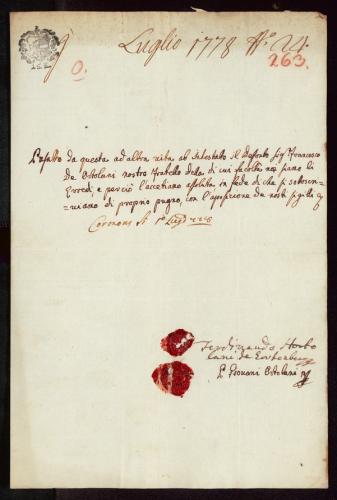 9 Luglio 1778 N.o 24.
O. 263.
Passato da questa ad altra vita ab intestato il defonto Sig.r Francesco
De Ortolani nostro fratello della di cui facoltà noi siamo li
Eredi, e perciò l'accetiamo in fede di che si sotoscri-
-viamo di proprio pugno, con l'apposizione de nostri sigilli
Cormons li 1o Luglio 1778
Ferdinando Horto
lani de
Giovani Ortolani